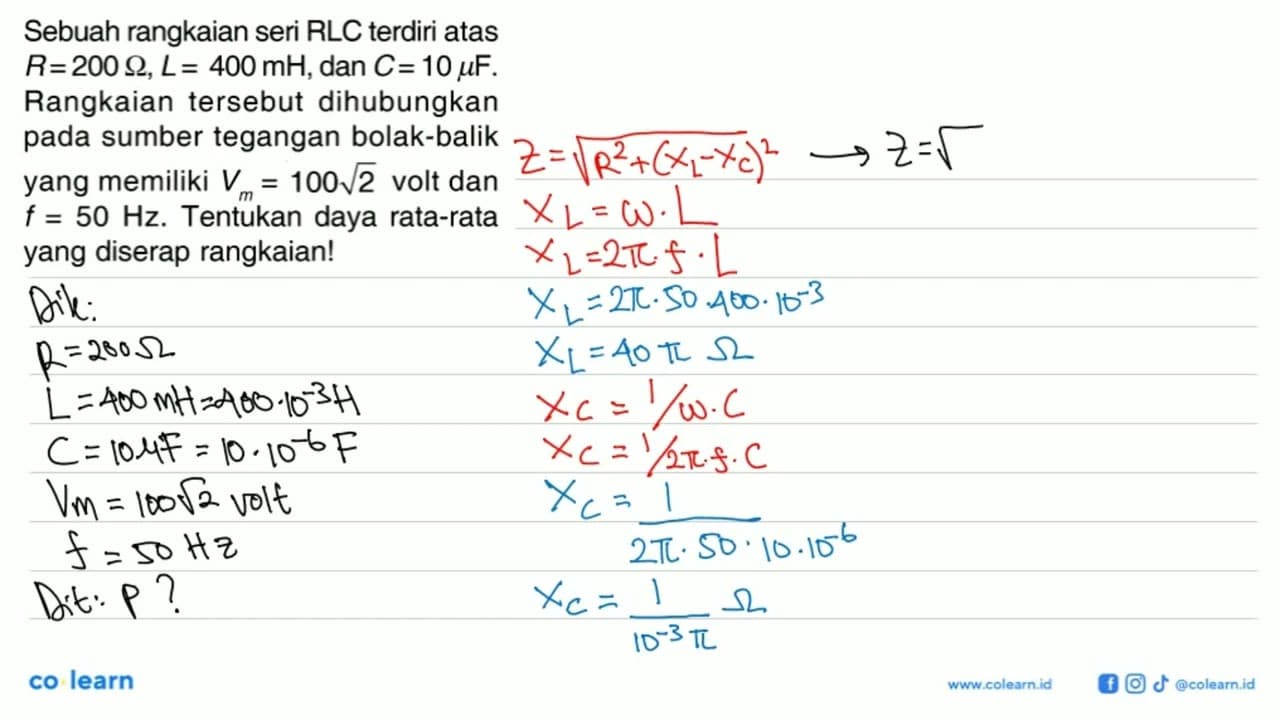 Sebuah rangkaian seri RLC terdiri atas
R = 200 Ω, L = 400 mH, dan C = 10 μF.
Rangkaian tersebut dihubungkan
pada sumber tegangan bolak-balik
yang memiliki Vₘ = 100√2 volt dan
f = 50 Hz. Tentukan daya rata-rata
yang diserap rangkaian!
Dik:
R = 200 Ω
L = 400 mH = 400 · 10⁻³ H
C = 10 μF = 10 · 10⁻⁶ F
Vm = 100√2 volt
f = 50 Hz
Dit: P ?
Z = √R² + (X_L - X_C)² → Z = √
X_L = ω · L
X_L = 2π · f · L
X_L = 2π · 50 · 400 · 10⁻³
X_L = 40 π Ω
X_C = 1/ω · C
X_C = 1/2π · f · C
X_C = 1
2π · 50 · 10 · 10⁻⁶
X_C = 1 Ω
10⁻³ π
co learn
www.colearn.id
@colearn.id